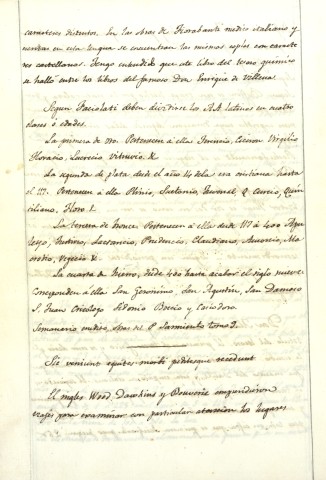 caracteres distintos. En las obras de Fiorabanti medico italiano y
escritas en esta lengua se encuentran las mismas coplas con caracte
res castellanos. Tengo entendido que este libro del tesoro quimico
se halló entre los libros del famoso Don Enrique de Villena.
Segun Faciolati deben dividirse los AA. latinos en cuatro
clases ó edades.
La primera de oro. Pertenecen á ella Terencio, Ciceron Virgilio
Horacio, Lucrecio Vitruvio. &
La segunda de plata desde el año 14 de la era cristiana hasta
el 117. Pertenecen á ella Plinio, Suetonio, Juvenal, Q. Curcio, Quin
tiliano, Floro &.
La tercera de bronce. Pertenecen á ella desde 117 á 400 Apu
leyo, Justino, Lactancio, Prudencio, Claudiano, Ausonio, Ma
crobio, Vegecio &.
La cuarta de hierro, desde 400 hasta acabar el siglo nueve.
Corresponden á ella San Geronimo, San Agustin, San Damaso
S. Juan Crisologo Sidonio Boecio y Casiodoro.
Semanario erudito, obras del P. Sarmiento tomo I.
Sic veniunt equites peditesque recedunt
El ingles Wood, Dawkins y Bouverie emprendieron
viages para examinar con particular atencion los lugares